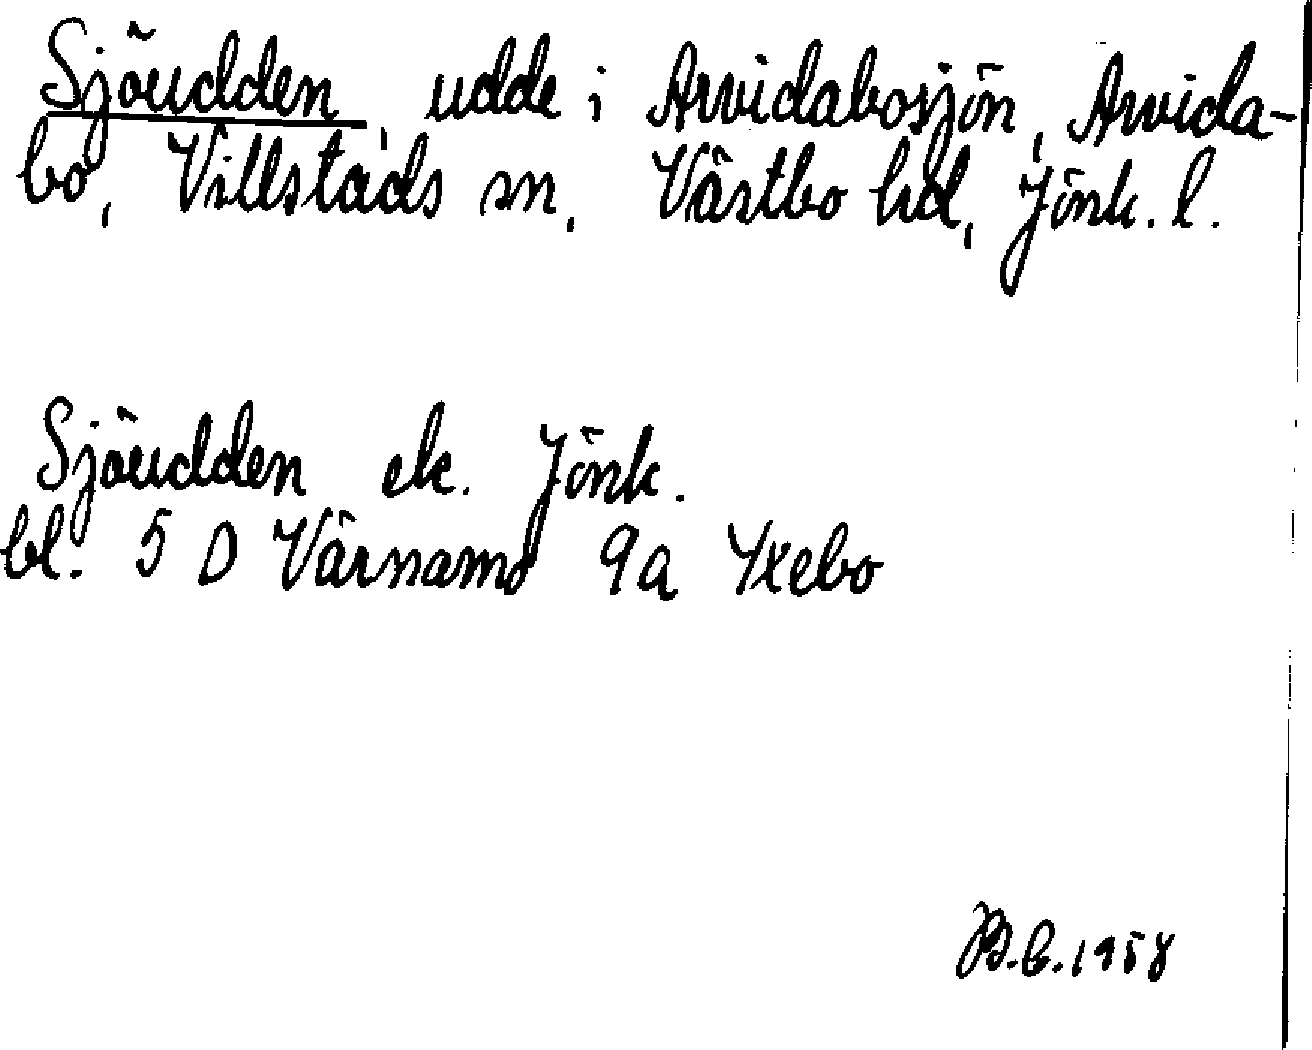 Sjöudden, udde i Arvidabosjön, Arvida-
bo, Villstads sn, Västbo hd, Jönk. l.
Sjöudden ek. Jönk.
bl. 5 D Värnamo 9a Yxebo
B.E. 1958